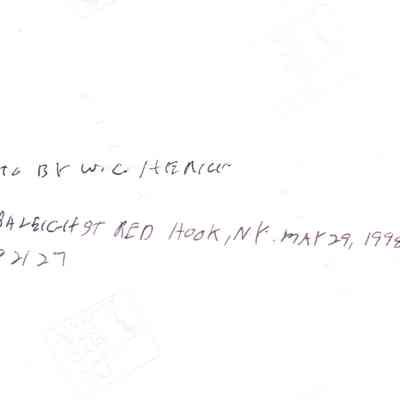 TO BY W.C. HERICH
RALEIGH ST RED HOOK, NY. MAY 29, 1998
92127